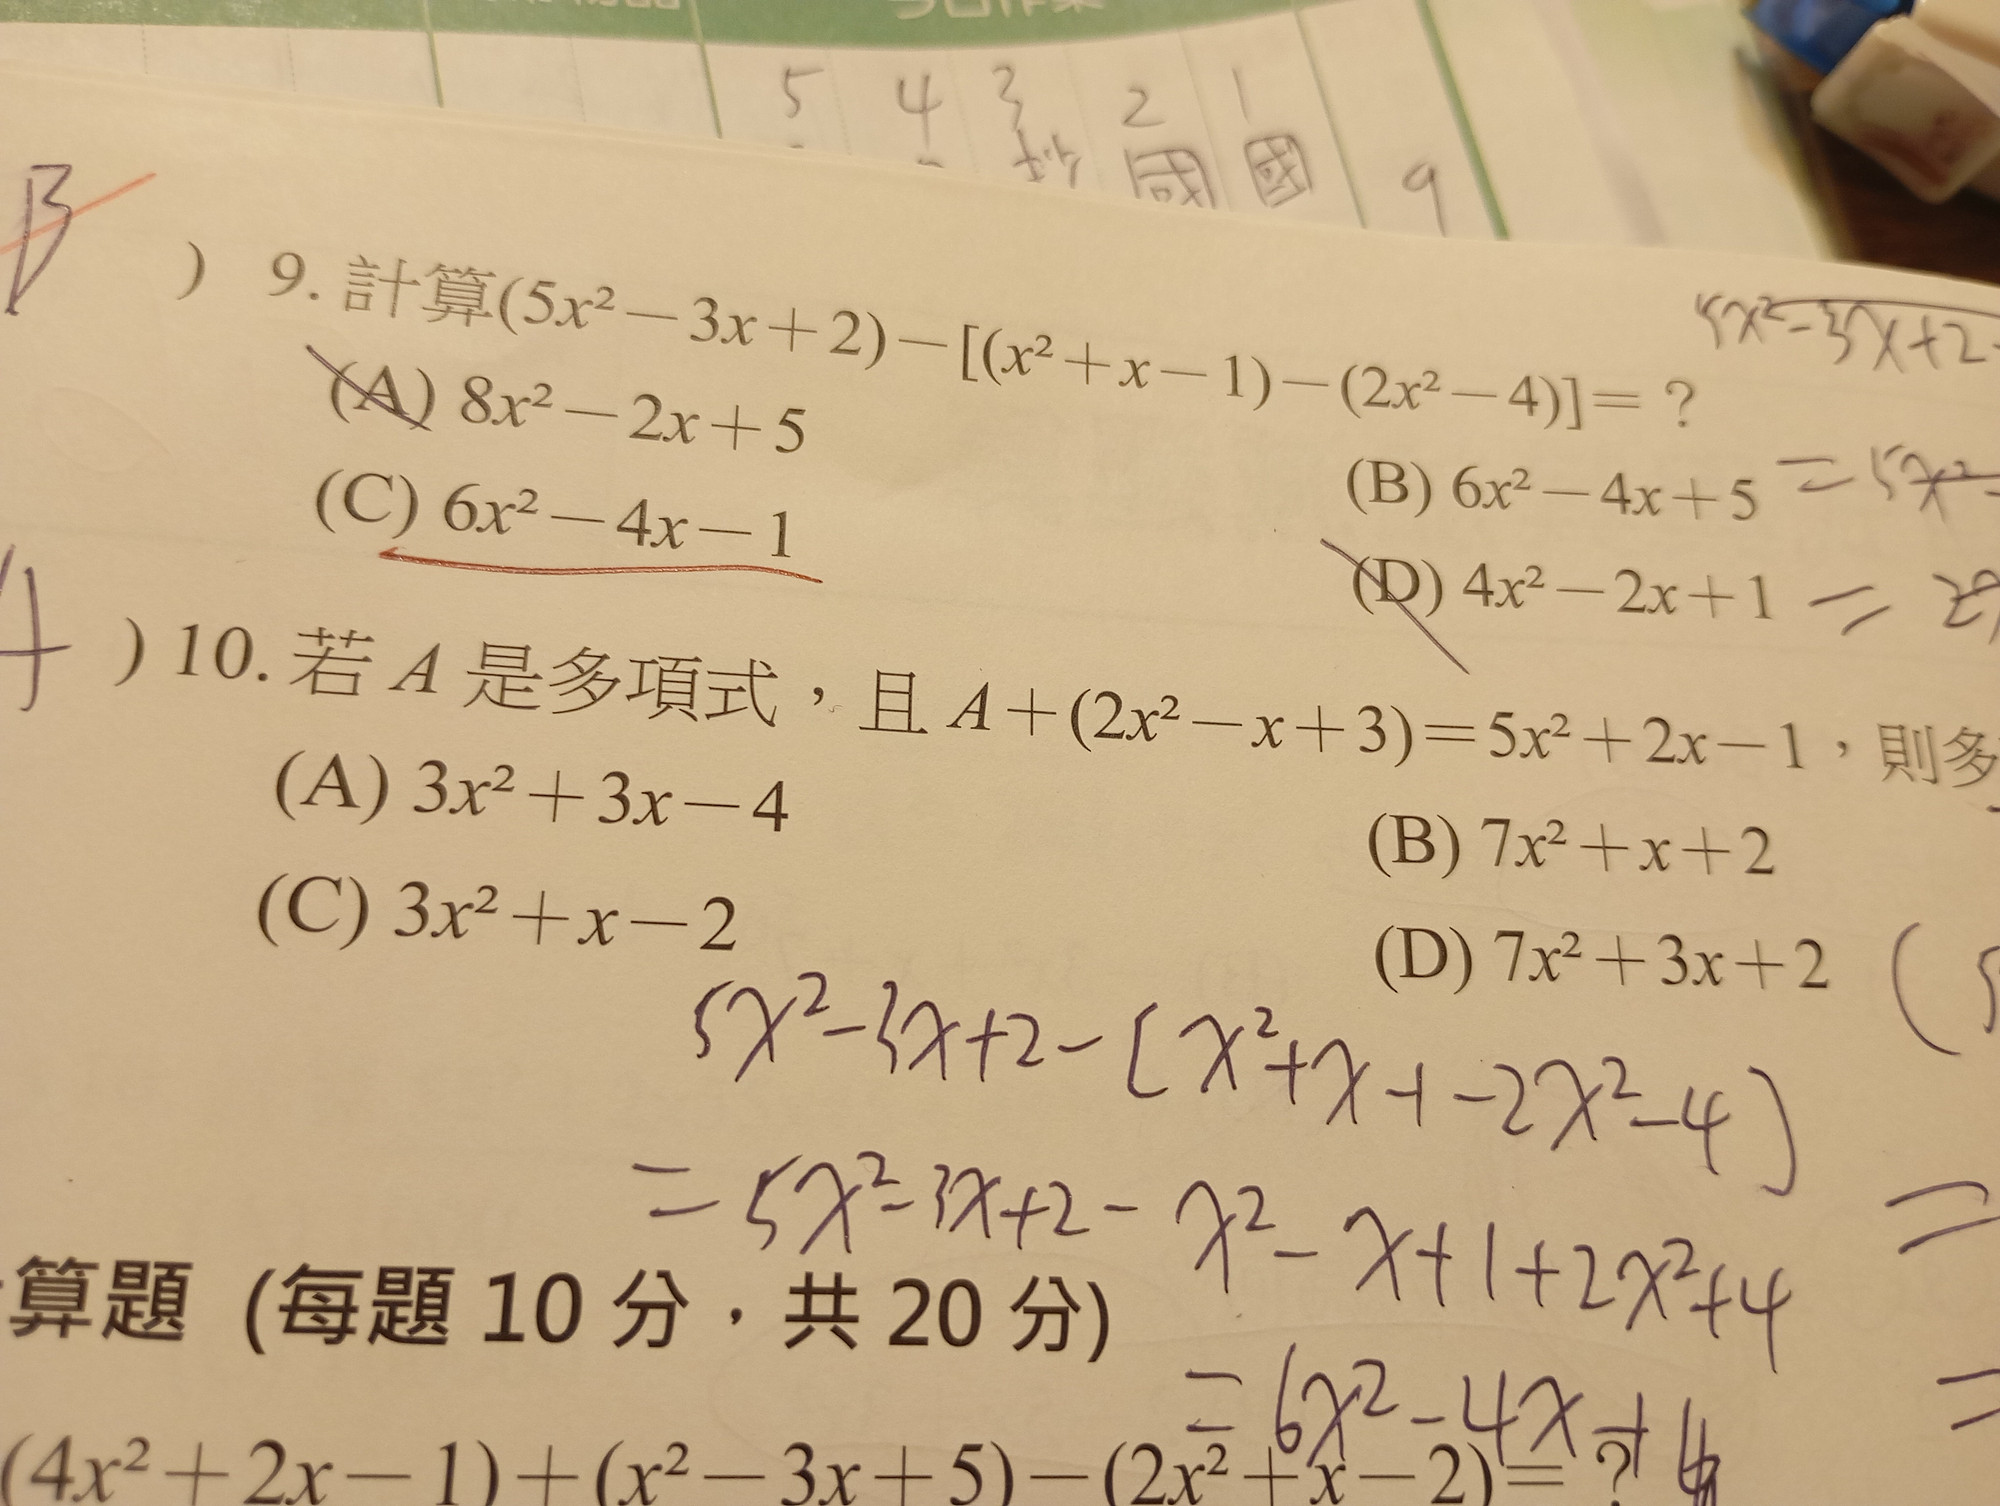 5 4 3 2 1
國 國 9
B
) 9. 計算(5x²－3x＋2)－[(x²＋x－1)－(2x²－4)]=？
5x²-3x+2-
(A) 8x²－2x＋5
(B) 6x²－4x＋5
= 5x²-
(C) 6x²－4x－1
(D) 4x²－2x＋1
=
) 10. 若 A 是多項式，且 A＋(2x²－x＋3)＝5x²＋2x－1，則多
(A) 3x²＋3x－4
(B) 7x²＋x＋2
(C) 3x²＋x－2
(D) 7x²＋3x＋2
(5
5x²-3x+2-[x²+x-1-2x²-4]
= 5x²-3x+2-x²-x+1+2x²+4
=
算題 (每題 10 分，共 20 分)
= 6x²-4x+
=
(4x²＋2x－1)＋(x²－3x＋5)－(2x²＋x－2)＝？